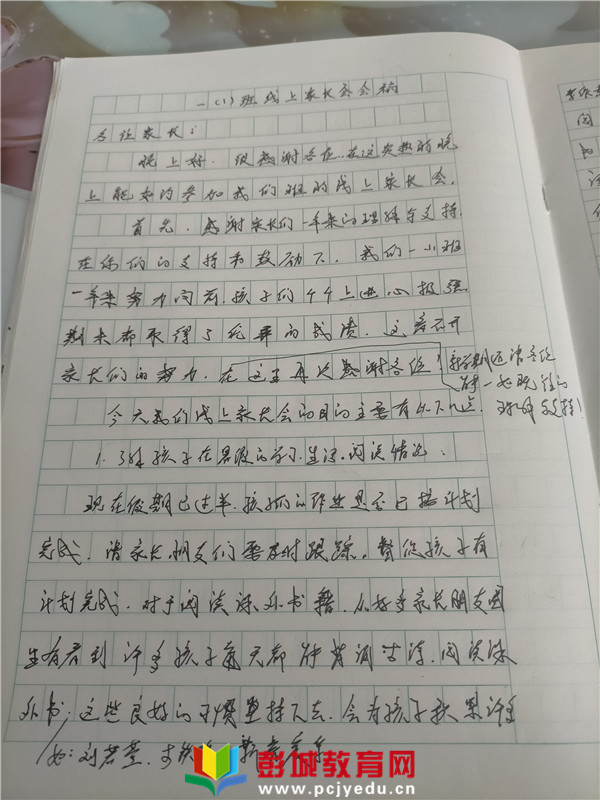 一(1)班线上家长会会稿
各位家长:
晚上好.很感谢各位.在这炎热的晚
上能如约参加我们班的线上家长会.
首先.感谢家长们一年来的理解与支持.
在你们的支持和鼓励下.我们一(1)班
一年来努力向前.孩子们个个上进心极强
期末都取得了优异的成绩.这离不开
家长们的努力.在这里再次感谢各位!
新学期还请各位
能一如既往的
理解支持!
今天我们线上家长会的目的主要有以下几点.
1.了解孩子在暑假的学习.生活.阅读情况:
现在假期已过半.孩子们的作业是否已按计划
完成.请家长朋友们要及时跟踪.督促孩子有
计划完成.对于阅读课外书籍.从好多家长朋友圈
里有看到许多孩子每天都能背诵古诗.阅读课
外书;这些良好的习惯坚持下去.会为孩子收累许多
如:刘若萱.
彭城教育网
www.pcjyedu.cn